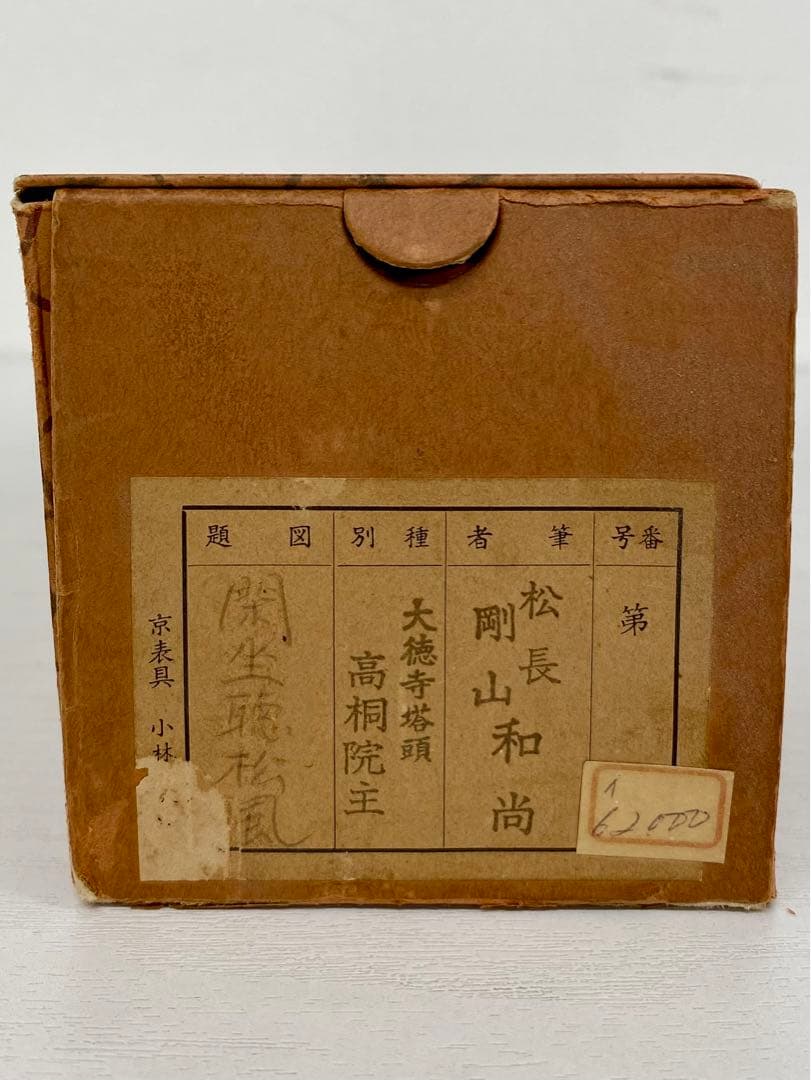 番号
第
筆者
松長
剛山和尚
種別
大徳寺塔頭
高桐院主
図題
閑坐聴松風
京表具 小林
62000